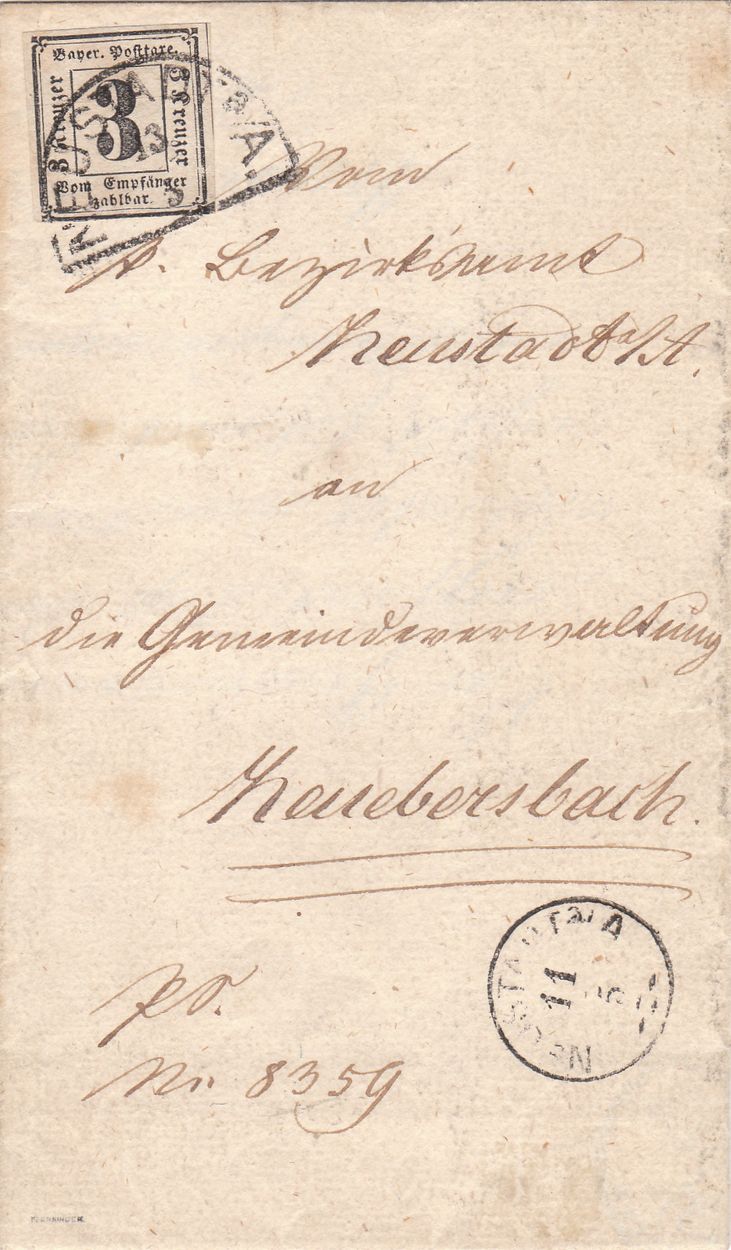 Bayer. Posttaxe.
3 Kreuzer
3
3 Kreuzer
Vom Empfänger
zahlbar.
NEUSTADT a/A.
13
Vom
k. Bezirksamt
Neustadt a/A.
an
die Gemeindeverwaltung
Kaubersbach.
NEUSTADT a/A
11
PS.
Nr. 8359
PFENNINGER